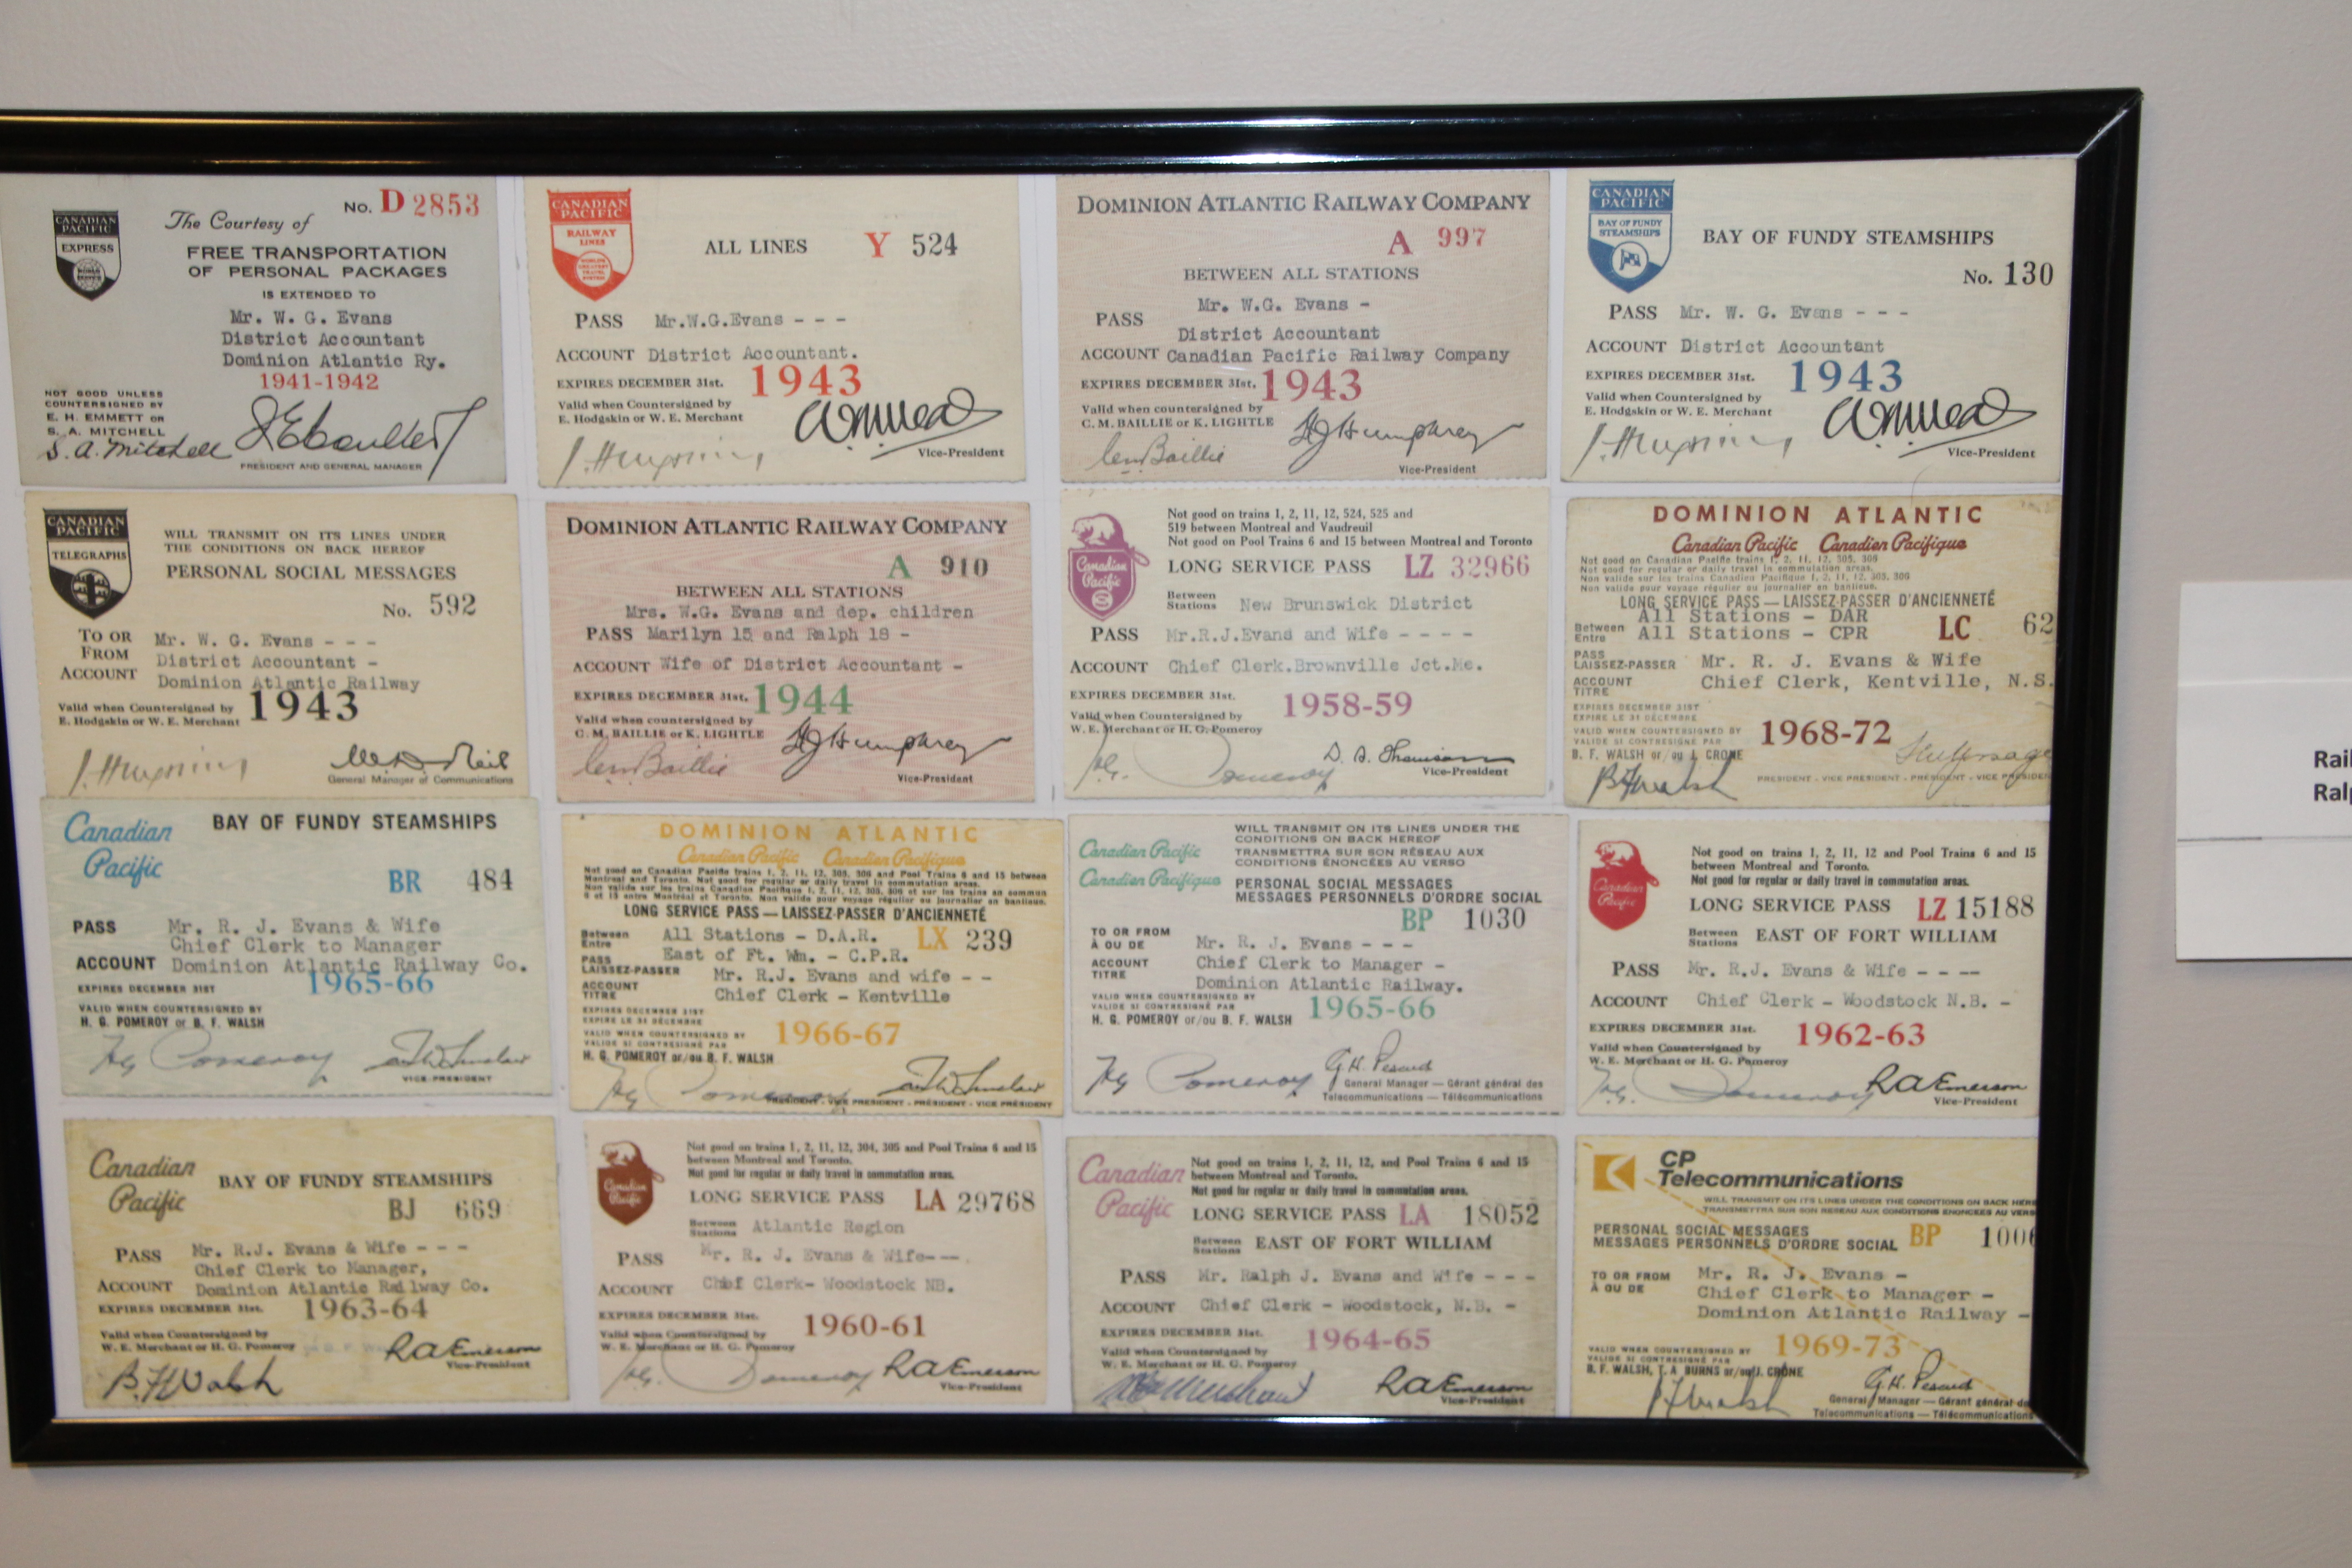 CANADIAN
PACIFIC
EXPRESS
No. D 2853
The Courtesy of
FREE TRANSPORTATION
OF PERSONAL PACKAGES
IS EXTENDED TO
Mr. W. G. Evans
District Accountant
Dominion Atlantic Ry.
1941-1942
NOT GOOD UNLESS
COUNTERSIGNED BY
E. H. EMMETT OR
S. A. MITCHELL
S. A. Mitchell
PRESIDENT AND GENERAL MANAGER
CANADIAN
PACIFIC
RAILWAY
LINES
WORLD'S
GREATEST
TRAVEL
SYSTEM
ALL LINES Y 524
PASS Mr.W.G.Evans - - -
ACCOUNT District Accountant.
EXPIRES DECEMBER 31st. 1943
Valid when Countersigned by
E. Hodgskin or W. E. Merchant
Vice-President
DOMINION ATLANTIC RAILWAY COMPANY
A 997
BETWEEN ALL STATIONS
Mr. W.G. Evans -
PASS
District Accountant
ACCOUNT Canadian Pacific Railway Company
EXPIRES DECEMBER 31st. 1943
Valid when countersigned by
C. M. BAILLIE or K. LIGHTLE
Vice-President
CANADIAN
PACIFIC
BAY OF FUNDY
STEAMSHIPS
BAY OF FUNDY STEAMSHIPS
No. 130
PASS Mr. W. G. Evans - - -
ACCOUNT District Accountant
EXPIRES DECEMBER 31st. 1943
Valid when Countersigned by
E. Hodgskin or W. E. Merchant
Vice-President
CANADIAN
PACIFIC
TELEGRAPHS
WILL TRANSMIT ON ITS LINES UNDER
THE CONDITIONS ON BACK HEREOF
PERSONAL SOCIAL MESSAGES
No. 592
TO OR
FROM
Mr. W. G. Evans - - -
District Accountant -
ACCOUNT
Dominion Atlantic Railway
Valid when Countersigned by
E. Hodgskin or W. E. Merchant
1943
General Manager of Communications
DOMINION ATLANTIC RAILWAY COMPANY
A 910
BETWEEN ALL STATIONS
Mrs. W.G. Evans and dep. children
PASS Marilyn 15 and Ralph 18 -
ACCOUNT Wife of District Accountant -
EXPIRES DECEMBER 31st. 1944
Valid when countersigned by
C. M. BAILLIE or K. LIGHTLE
Vice-President
Canadian
Pacific
Not good on trains 1, 2, 11, 12, 524, 525 and
519 between Montreal and Vaudreuil
Not good on Pool Trains 6 and 15 between Montreal and Toronto
LONG SERVICE PASS LZ 32966
Between
Stations New Brunswick District
PASS Mr.R.J.Evans and Wife - - - -
ACCOUNT Chief Clerk.Brownville Jct.Me.
EXPIRES DECEMBER 31st.
1958-59
Valid when Countersigned by
W. E. Merchant or H. G. Pomeroy
Vice-President
DOMINION ATLANTIC
Canadian Pacific Canadien Pacifique
Not good on Canadian Pacific trains 1, 2, 11, 12, 305, 306
Not good for regular or daily travel in commutation areas.
Non valide sur les trains Canadien Pacifique 1, 2, 11, 12, 305, 306
Non valide pour voyage régulier ou journalier en banlieue.
LONG SERVICE PASS — LAISSEZ-PASSER D'ANCIENNETÉ
Between
Entre
All Stations - DAR
All Stations - CPR
LC 62
PASS
LAISSEZ-PASSER Mr. R. J. Evans & Wife
ACCOUNT
TITRE Chief Clerk, Kentville, N.S.
EXPIRES DECEMBER 31ST
EXPIRE LE 31 DÉCEMBRE
VALID WHEN COUNTERSIGNED BY
VALIDE SI CONTRESIGNÉ PAR
1968-72
B. F. WALSH or/ou J. CRONE
PRESIDENT - VICE PRESIDENT - PRÉSIDENT - VICE PRÉSIDEN
Canadian
Pacific
BAY OF FUNDY STEAMSHIPS
BR 484
PASS Mr. R. J. Evans & Wife
Chief Clerk to Manager
ACCOUNT Dominion Atlantic Railway Co.
EXPIRES DECEMBER 31ST 1965-66
VALID WHEN COUNTERSIGNED BY
H. G. POMEROY or B. F. WALSH
VICE-PRESIDENT
DOMINION ATLANTIC
Canadian Pacific Canadien Pacifique
Not good on Canadian Pacific trains 1, 2, 11, 12, 305, 306 and Pool Trains 6 and 15 between
Montreal and Toronto. Not good for regular or daily travel in commutation areas.
Non valide sur les trains Canadien Pacifique 1, 2, 11, 12, 305, 306 et sur les trains en commun
6 et 15 entre Montréal et Toronto. Non valide pour voyage régulier ou journalier en banlieue.
LONG SERVICE PASS — LAISSEZ-PASSER D'ANCIENNETÉ
Between
Entre
All Stations - D.A.R. LX 239
East of Ft. Wm. - C.P.R.
PASS
LAISSEZ-PASSER Mr. R.J. Evans and wife - -
ACCOUNT
TITRE Chief Clerk - Kentville
EXPIRES DECEMBER 31ST
EXPIRE LE 31 DÉCEMBRE
VALID WHEN COUNTERSIGNED BY
VALIDE SI CONTRESIGNÉ PAR
1966-67
H. G. POMEROY or/ou B. F. WALSH
PRESIDENT - VICE PRESIDENT - PRÉSIDENT - VICE PRÉSIDENT
Canadian Pacific
Canadien Pacifique
WILL TRANSMIT ON ITS LINES UNDER THE
CONDITIONS ON BACK HEREOF
TRANSMETTRA SUR SON RÉSEAU AUX
CONDITIONS ÉNONCÉES AU VERSO
PERSONAL SOCIAL MESSAGES
MESSAGES PERSONNELS D'ORDRE SOCIAL
BP 1030
TO OR FROM
À OU DE
Mr. R. J. Evans - - -
ACCOUNT
TITRE
Chief Clerk to Manager -
Dominion Atlantic Railway.
VALID WHEN COUNTERSIGNED BY
VALIDE SI CONTRESIGNÉ PAR
1965-66
H. G. POMEROY or/ou B. F. WALSH
General Manager — Gérant général des
Telecommunications — Télécommunications
Canadian
Pacific
Not good on trains 1, 2, 11, 12 and Pool Trains 6 and 15
between Montreal and Toronto.
Not good for regular or daily travel in commutation areas.
LONG SERVICE PASS LZ 15188
Between
Stations EAST OF FORT WILLIAM
PASS Mr. R.J. Evans & Wife - - --
ACCOUNT Chief Clerk - Woodstock N.B. -
EXPIRES DECEMBER 31st.
1962-63
Valid when Countersigned by
W. E. Merchant or H. G. Pomeroy
RAEmerson
Vice-President
Canadian
Pacific
BAY OF FUNDY STEAMSHIPS
BJ 669
PASS Mr. R.J. Evans & Wife - - -
Chief Clerk to Manager,
ACCOUNT Dominion Atlantic Railway Co.
EXPIRES DECEMBER 31st. 1963-64
Valid when Countersigned by
W. E. Merchant or H. G. Pomeroy
B. F. Walsh
RAEmerson
Vice-President
Canadian
Pacific
Not good on trains 1, 2, 11, 12, 304, 305 and Pool Trains 6 and 15
between Montreal and Toronto.
Not good for regular or daily travel in commutation areas.
LONG SERVICE PASS LA 29768
Between
Stations Atlantic Region
PASS Mr. R. J. Evans & Wife---.
ACCOUNT Chief Clerk- Woodstock NB.
EXPIRES DECEMBER 31st.
1960-61
Valid when Countersigned by
W. E. Merchant or H. G. Pomeroy
RAEmerson
Vice-President
Canadian
Pacific
Not good on trains 1, 2, 11, 12, and Pool Trains 6 and 15
between Montreal and Toronto.
Not good for regular or daily travel in commutation areas.
LONG SERVICE PASS LA 18052
Between
Stations EAST OF FORT WILLIAM
PASS Mr. Ralph J. Evans and Wife - - -
ACCOUNT Chief Clerk - Woodstock, N.B. -
EXPIRES DECEMBER 31st.
1964-65
Valid when Countersigned by
W. E. Merchant or H. G. Pomeroy
RAEmerson
Vice-President
CP
Telecommunications
WILL TRANSMIT ON ITS LINES UNDER THE CONDITIONS ON BACK HERE
TRANSMETTRA SUR SON RÉSEAU AUX CONDITIONS ÉNONCÉES AU VERS
PERSONAL SOCIAL MESSAGES
MESSAGES PERSONNELS D'ORDRE SOCIAL
BP 1006
TO OR FROM
À OU DE
Mr. R. J. Evans -
Chief Clerk to Manager -
Dominion Atlantic Railway -
VALID WHEN COUNTERSIGNED BY
VALIDE SI CONTRESIGNÉ PAR
1969-73
B. F. WALSH, T. A. BURNS or/ou J. CRONE
General Manager — Gérant général de
Telecommunications — Télécommunications
Rail
Ralp